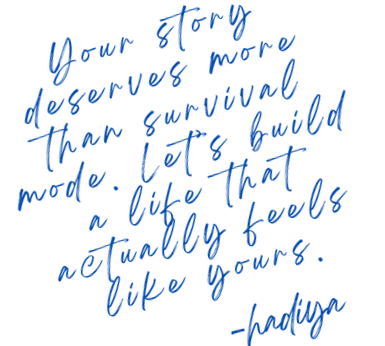 Your story
deserves more
than survival
mode. Let's build
a life that
actually feels
like yours.
-hadiya